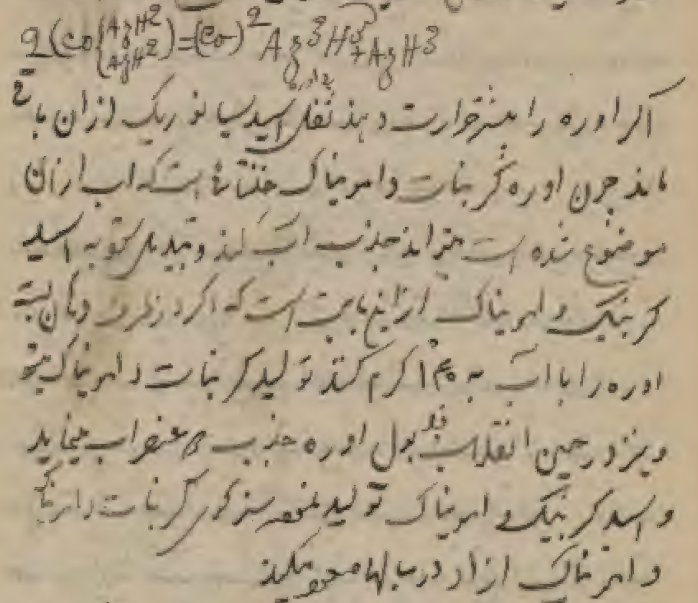 2(Co{AzH2 AzH2) = (Co)2 Az3H3 + AzH3
اکر اوره را بیشتر حرارت دهند ثفل اسید سیانوریک ازان باقی
ماند چون اوره کربنات دامونیاک است که آب ازان
موضوع شده است میتواند جذب آب کند و تبدیل شود به اسید
کربنیک و امونیاک ازین بابت است که اکر در ظرف دهان بسته
اوره را با آب به ۱۴۰ کرم کنند تولید کربنات دامونیاک میشود
و نیز در حین انقلاب بول اوره جذب عنصر آب مینماید
و اسید کربنیک و امونیاک تولید کربنات دامونیاک
و امونیاک ازاد در مبالها میکند